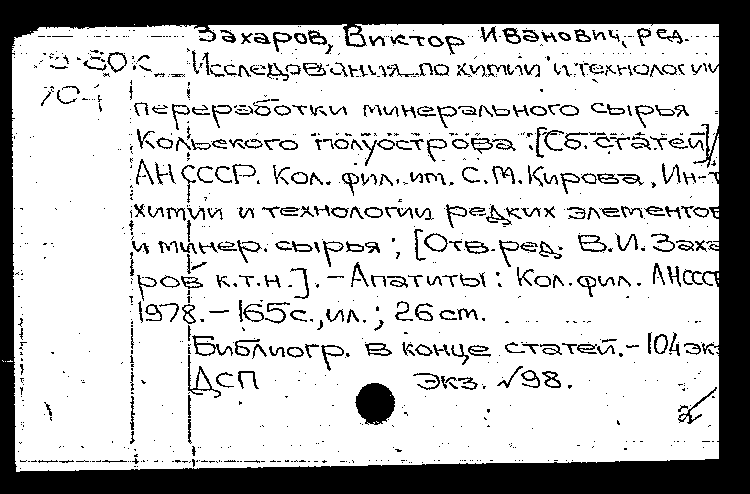 Захаров, Виктор Иванович, ред.
Исследования по химии и технологии
переработки минерального сырья
Кольского полуострова. [Сб. статей]/
АН СССР. Кол. фил. им. С.М. Кирова, Ин-т
химии и технологии редких элементов
и минер. сырья; [Отв. ред. В.И. Заха
ров к.т.н.]. – Апатиты: Кол. фил. АНСССР
1978. – 165 с., ил.; 26 cm.
Библиогр. в конце статей. – 104 экз
ДСП экз. √98.
2